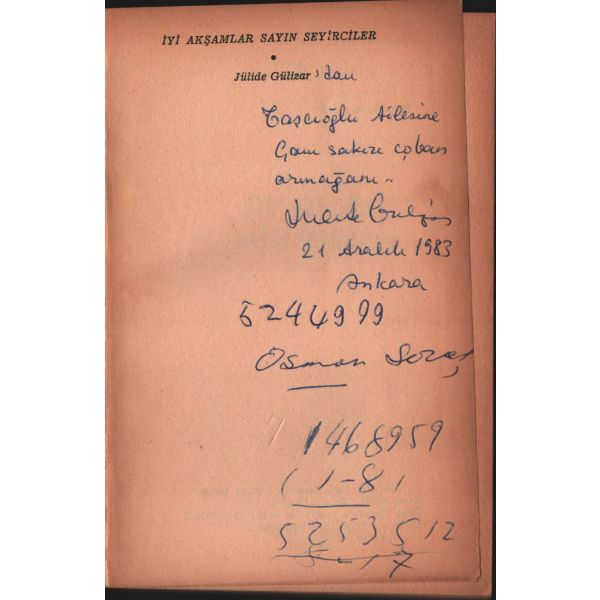 İYİ AKŞAMLAR SAYIN SEYİRCİLER
•
Jülide Gülizar'dan
Taşcıoğlu Ailesine
Çam sakızı çoban
armağanı..
21 Aralık 1983
Ankara
5244999
Osman
1468959
5253512